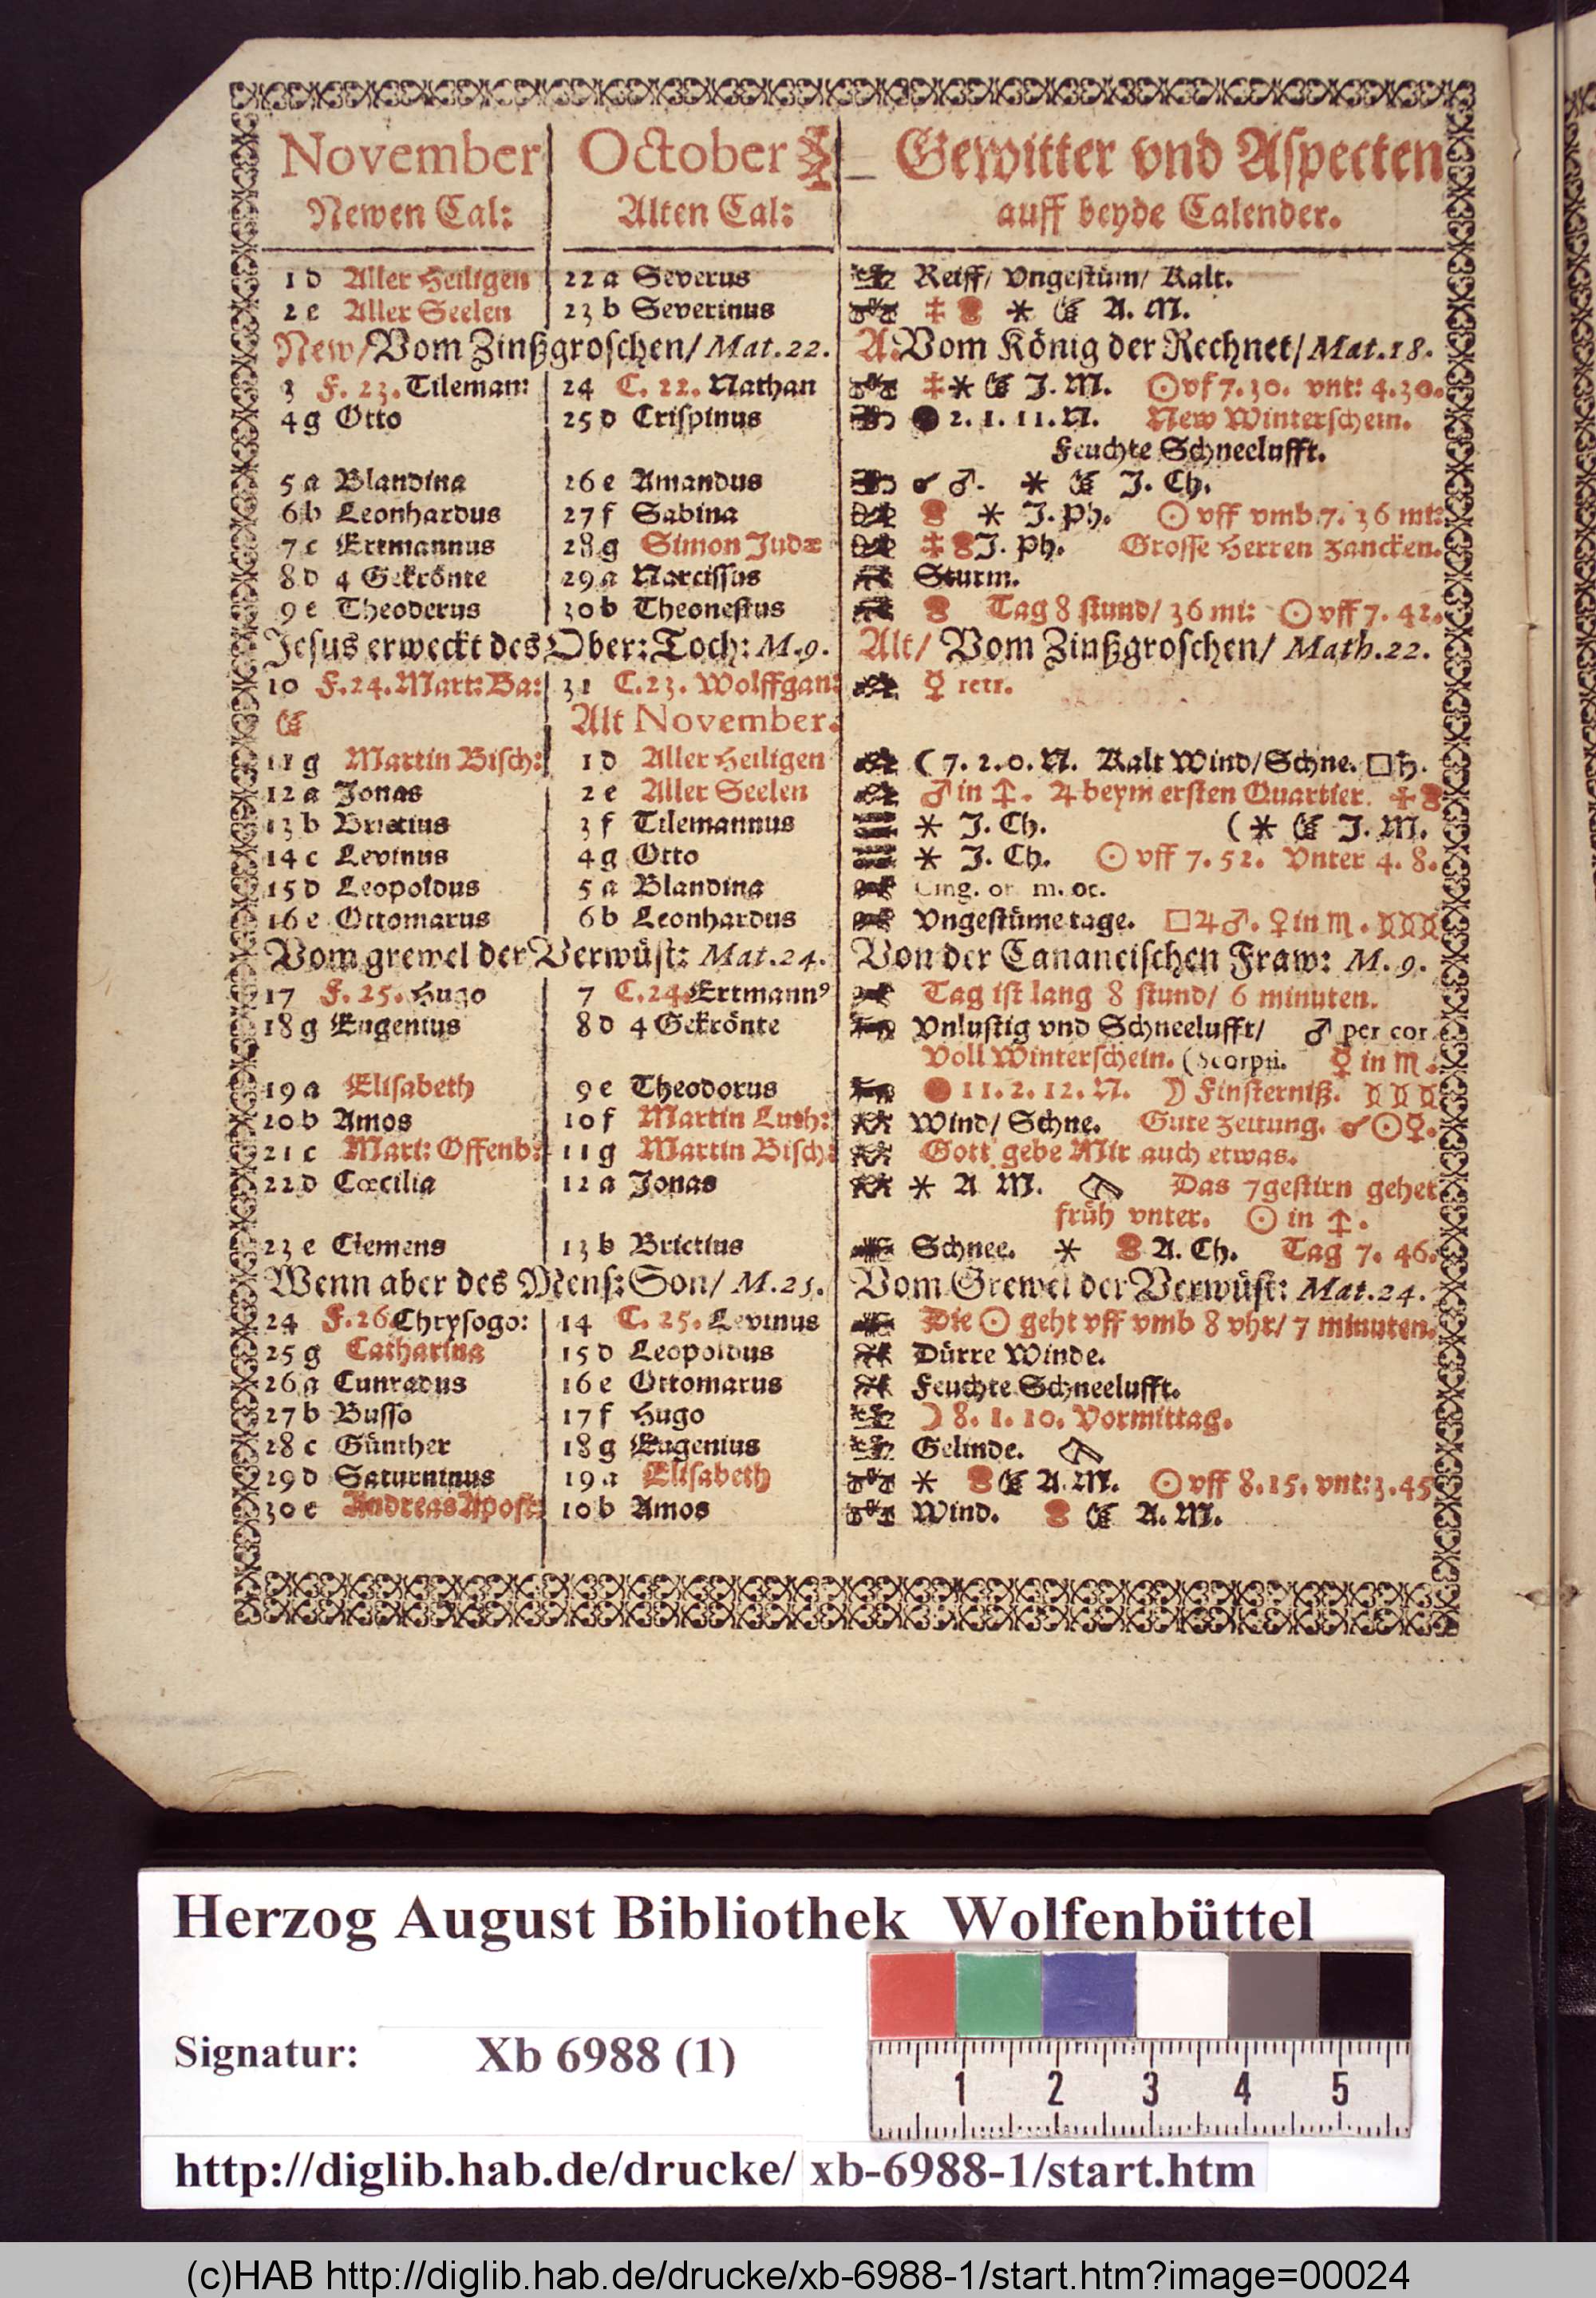 November October Gewitter vnd Aspecten
Newen Cal: Alten Cal: auff beyde Calender.
1 d Aller Heiligen 22 a Severus Reiff/ Vngestüm/ Kalt.
2 e Aller Seelen 23 b Severinus ⚹ A. M.
New/Vom Zinßgroschen/ Mat.22. A. Vom König der Rechnet/ Mat.18.
3 F. 23. Tileman: 24 C. 22. Nathan ⚹ J. M. ☉ vf 7.30. vnt: 4.30.
4 g Otto 25 d Crispinus ● 2. 1. 11. N. New Winterschein.
Feuchte Schneelufft.
5 a Blandina 26 e Amandus ☌ ♂. ⚹ J. Ch.
6 b Leonhardus 27 f Sabina ⚹ J. Ph. ☉ vff vmb 7. 36 mi:
7 c Ertmannus 28 g Simon Judæ J. Ph. Grosse Herren zancken.
8 d 4 Gekrönte 29 a Narcissus Sturm.
9 e Theoderus 30 b Theonestus Tag 8 stund/ 36 mi: ☉ vff 7. 42.
Jesus erweckt des Ober: Toch: M.9. Alt/ Vom Zinßgroschen/ Math.22.
10 F.24. Mart: Ba: 31 C.23. Wolffgan: ☿ retr.
Alt November.
11 g Martin Bisch: 1 d Aller Heiligen ( 7. 2. 0. N. Kalt Wind/ Schne. □ ♄.
12 a Jonas 2 e Aller Seelen ♂ in ♐. ♃ beym ersten Quartier.
13 b Brictius 3 f Tilemannus ⚹ J. Ch. ( ⚹ J. M.
14 c Levinus 4 g Otto ⚹ J. Ch. ☉ vff 7. 52. Vnter 4. 8.
15 d Leopoldus 5 a Blandina Cing. or. m. oc.
16 e Ottomarus 6 b Leonhardus Vngestüme tage. □ ♃ ♂. ♀ in ♏.
Vom grewel der Verwüst: Mat.24. Von der Cananeischen Fraw: M. 9.
17 F. 25. Hugo 7 C.24. Ertmann⁹ Tag ist lang 8 stund/ 6 minuten.
18 g Eugenius 8 d 4 Gekrönte Vnlustig vnd Schneelufft/ ♂ per cor
Voll Winterschein. (Scorpii. ☿ in ♏.
19 a Elisabeth 9 e Theodorus 11. 2. 12. N. ☽ Finsterniß.
20 b Amos 10 f Martin Luth: Wind/ Schne. Gute zeitung. ☌ ☉ ☿.
21 c Mari: Offenb: 11 g Martin Bisch: Gott gebe Mir auch etwas.
22 d Cœcilia 12 a Jonas ⚹ A M. Das 7gestirn gehet
früh vnter. ☉ in ♐.
23 e Clemens 13 b Brictius Schnee. ⚹ A. Ch. Tag 7. 46.
Wenn aber des Mens: Son/ M.25. Vom Grewel der Verwüst: Mat.24.
24 F.26 Chrysogo: 14 C. 25. Levinus Die ☉ geht vff vmb 8 vhr/ 7 minuten.
25 g Catharina 15 d Leopoldus Dürre Winde.
26 a Cunradus 16 e Ottomarus Feuchte Schneelufft.
27 b Busso 17 f Hugo ☽ 8. 1. 10. Vormittag.
28 c Günther 18 g Eugenius Gelinde.
29 d Saturninus 19 a Elisabeth ⚹ A. M. ☉ vff 8.15. vnt: 3.45
30 e Andreas Apost: 20 b Amos Wind. A. M.
Herzog August Bibliothek Wolfenbüttel
Signatur: Xb 6988 (1)
1 2 3 4 5
http://diglib.hab.de/drucke/ xb-6988-1/start.htm
(c)HAB http://diglib.hab.de/drucke/xb-6988-1/start.htm?image=00024